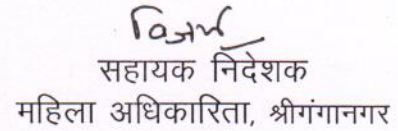 सहायक निदेशक
महिला अधिकारिता, श्रीगंगानगर